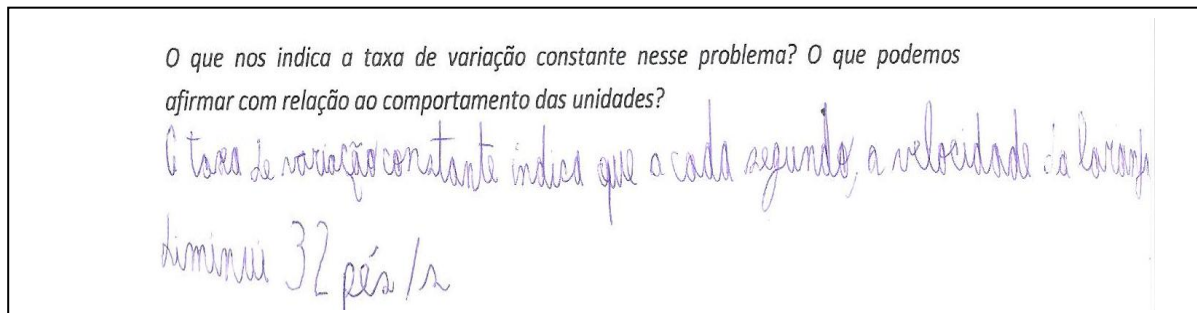 O que nos indica a taxa de variação constante nesse problema? O que podemos
afirmar com relação ao comportamento das unidades?
A taxa de variação constante indica que a cada segundo, a velocidade da laranja
diminui 32 pés/s